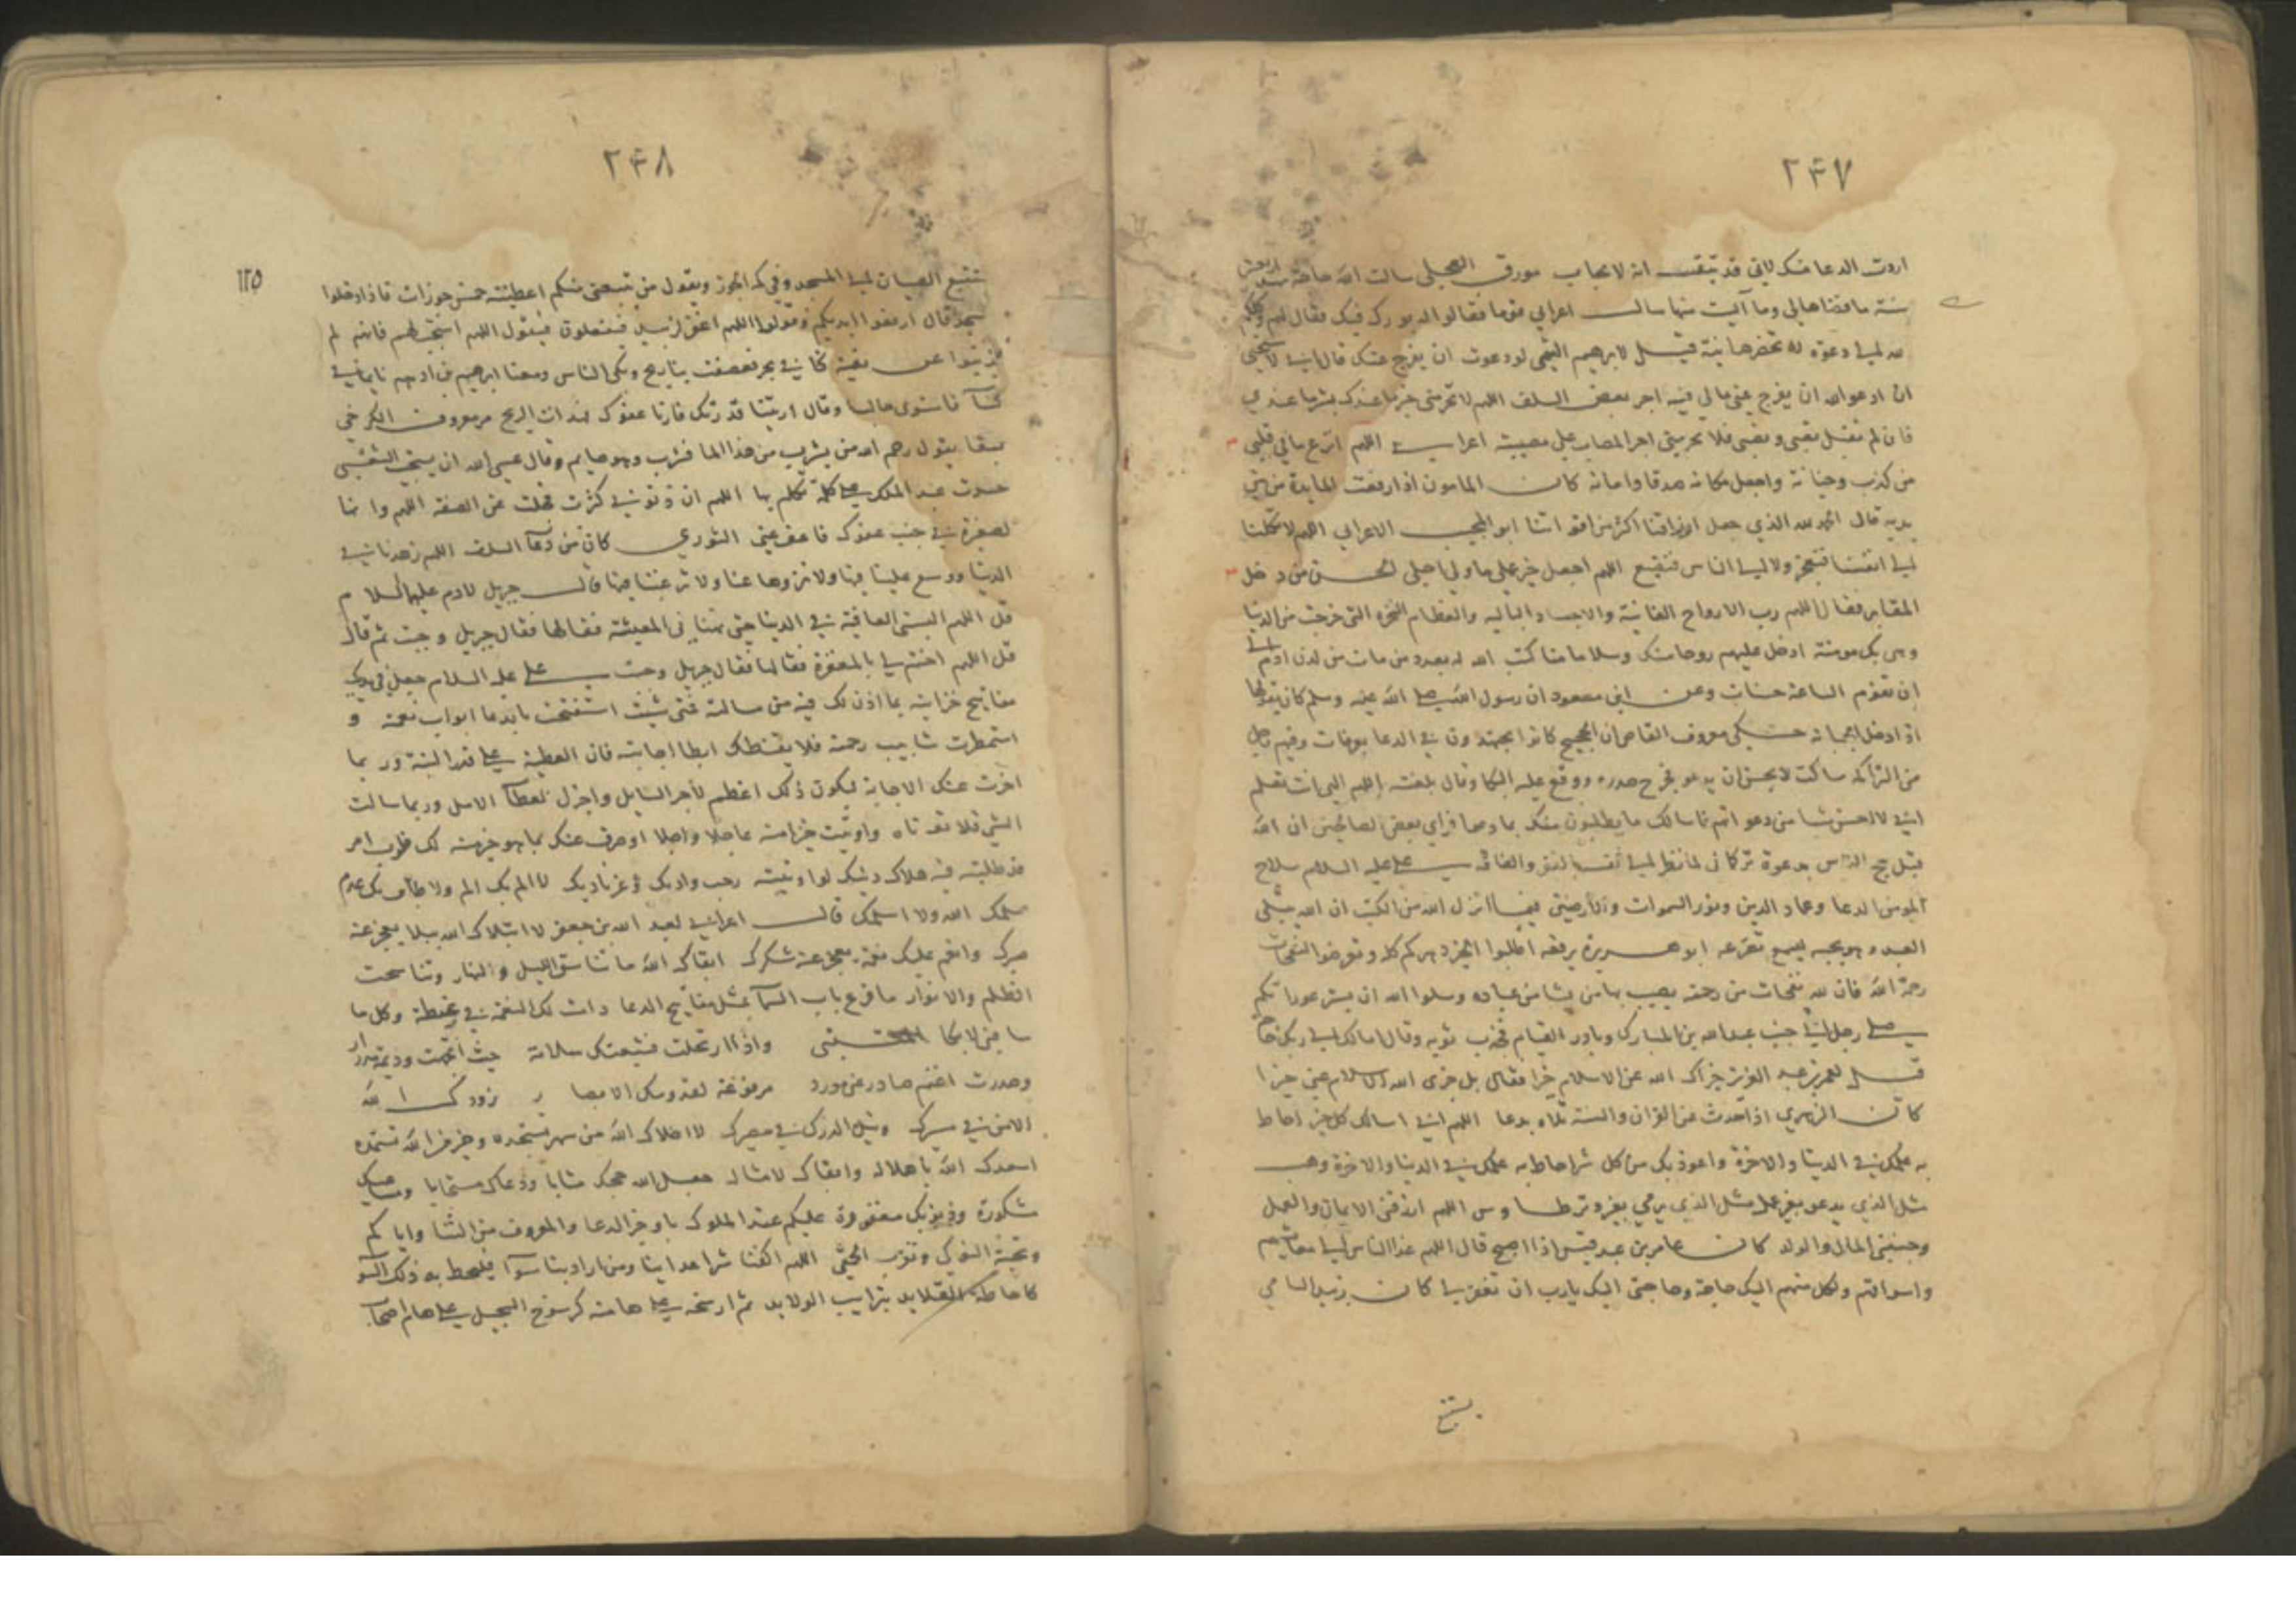 ٢٤٧
اردت الدعا منك لاني قد تيقنت انه لا يجاب مورق العجلي سالت الله حاجة منذ اربعين
سنة ما قضاها لي وما آيست منها سال اعرابي قوما فقالوا له بورك فيك فقال
الى دعوة لا تحضرها نية قيل لابرهيم التيمي لو دعوت ان يفرج عنك قال اني لاستحيي
ان ادعو الله ان يفرج عني ما لي فيه اجر بعض السلف اللهم لا تحرمني خير ما عندك بشر ما عندي
فان لم تقبل تعبي ونصبي فلا تحرمني اجر المصاب على مصيبته اعرابي اللهم انزع ما في قلبي
من كذب وخيانة واجعل مكانه صدقا وامانة كان المامون اذا رفعت المايدة من بين
يديه قال الحمد لله الذي جعل ارزاقنا اكثر من اقواتنا ابو المجيب الاعرابي اللهم لا تكلنا
الى انفسنا فنعجز ولا الى الناس فنضيع اللهم اجعل خير عملي ما ولي اجلي الحسن من دخل
المقابر فقال اللهم رب الارواح الفانية والاجساد الباليه والعظام النخرة التي خرجت من الدنيا
وهي بك مومنة ادخل عليهم روحا منك وسلاما منا كتب الله له بعدد من مات من لدن ادم الى
ان تقوم الساعة حسنات وعن ابن مسعود ان رسول الله صلى الله عليه وسلم كان يقولها
اذا دخل الجبانة حكي معروف القاص ان الحجيج كانوا يجتهدون في الدعا بعرفات وفيهم رجل
من التراكمه ساكت لا يحسن ان يدعو فخرج صدره ووقع عليه البكا وقال بلغته اللهم انت تعلم
اني لا احسن شيا من دعواتهم فاسالك ما يطلبون منك بما دعوا فراى بعض الصالحين ان الله
قبل حج الناس بدعوة تركماني لما نظر الى نفسه بالفقر والفاقة علي عليه السلام سلاح
المومن الدعا وعماد الدين ونور السموات والارضين فيما انزل الله من الكتب ان الله يبتلي
العبد وهو يحبه ليسمع تضرعه ابو هريرة يرفعه اطلبوا الخير دهركم كله وتعرضوا النفحات
رحمة الله فان لله نفحات من رحمته يصيب بها من يشا من عباده وسلوا الله ان يستر عوراتكم
صلى رجل الى جنب عبد الله بن المبارك وبادر القيام فجذب ثوبه وقال اما لك الى ربك حاجة
قيل لعمر بن عبد العزيز جزاك الله عن الاسلام خيرا فقال بل جزى الله الاسلام عني خيرا
كان الزهري اذا حدث عن القران والسنة تلاه بدعا اللهم اني اسالك كل خير احاط
به علمك في الدنيا والاخرة واعوذ بك من كل شر احاط به علمك في الدنيا والاخرة وهب
مثل الذي يدعو بغير عمل مثل الذي يرمي بغير وتر طاوس اللهم ارزقني الايمان والعمل
وجنبني المال والولد كان عامر بن عبد قيس اذا اصبح قال اللهم غدا الناس الى معايشهم
واسواقهم ولكل منهم اليك حاجة وحاجتي اليك يارب ان تغفر لي كان زبيد اليامي
يستتبع
٢٤٨
١٢٥
يستتبع الصبيان الى المسجد وفي كمه الجوز ويقول من تبعني منكم اعطيته خمس جوزات فاذا دخلوا
المسجد قال ارفعوا ايديكم وقولوا اللهم اغفر لزبيد فيفعلون فيقول اللهم استجب لهم فانهم لم
يذنبوا عن بقية كنا في بحر فعصفت بنا ريح وبكى الناس ومعنا ابراهيم بن ادهم نايما في
كسا فاستوى جالسا وقال اريتنا قدرتك فارنا عفوك فهدات الريح مر معروف الكرخي
بسقا يقول رحم الله من يشرب من هذا الما فشرب وهو صايم وقال عسى الله ان يستجيب الشعبي
حسدت عبد الملك على كلمة تكلم بها اللهم ان ذنوبي كثرت فجلت عن الصفة اللهم وانها
لصغيرة في جنب عفوك فاعف عني الثوري كان من دعا السلف اللهم زهدنا في
الدنيا ووسع علينا فيها ولا تزوها عنا ولا ترغبنا فيها قال جبريل لادم عليهما السلام
قل اللهم البسني العافية في الدنيا حتى تهنئني المعيشة فقالها فقال جبريل وجبت ثم قال
قل اللهم اختم لي بالمغفرة فقالها فقال جبريل وجبت علي عليه السلام جعل في يديك
مفاتيح خزاينه بما اذن لك فيه من مسالته فمتى شيت استفتحت بالدعا ابواب نعمه و
استمطرت شابيب رحمته فلا يقنطك ابطا اجابته فان العطية على قدر النية وربما
اخرت عنك الاجابة ليكون ذلك اعظم لاجر السايل واجزل لعطا الامل وربما سالت
الشي فلا تؤتاه واوتيت خيرا منه عاجلا واجلا او صرف عنك بما هو خير لك فلرب امر
قد طلبته فيه هلاك دينك لو اوتيته رحب واديك وعز ناديك لا الم بك الم ولا طاف بك عدم
سلمك الله ولا اسلمك قال اعرابي لعبد الله بن جعفر لا ابتلاك الله ببلا يعجز عنه
صبرك وانعم عليك نعمة يعجز عنها شكرك ابقاك الله ما تناسق الليل والنهار وتناسخت
الظلم والانوار ما قرع باب السما بمثل مفاتيح الدعا دامت لك النعمة في غبطة وكل ما
واذا ارتحلت فشيعتك سلامة حيث اتجهت وديمة مدرار
وصدرت اغنم صادر عن مورد مرفوعة لقدومك الابصار زودك الله
الامن في مسيرك ونيل الدرك في مصيرك لا اخلاك الله من سهم تستجده وخير من الله تستمده
اسعدك الله باهلاله وابقاك لامثاله جعل الله حجك مثابا ودعاك مستجابا ومساعيك
مشكورة وذنوبك مغفورة عليكم عند الملوك باوجز الدعا والمعروف من الثنا واياكم
وتحية النوكى اللهم اكفنا شر اعدائنا ومن ارادبنا سوا فليحط به ذلك السو
كاحاطة القلايد بترايب الولايد ثم ارسخه على هامته كرسوخ السجيل على هام اصحاب